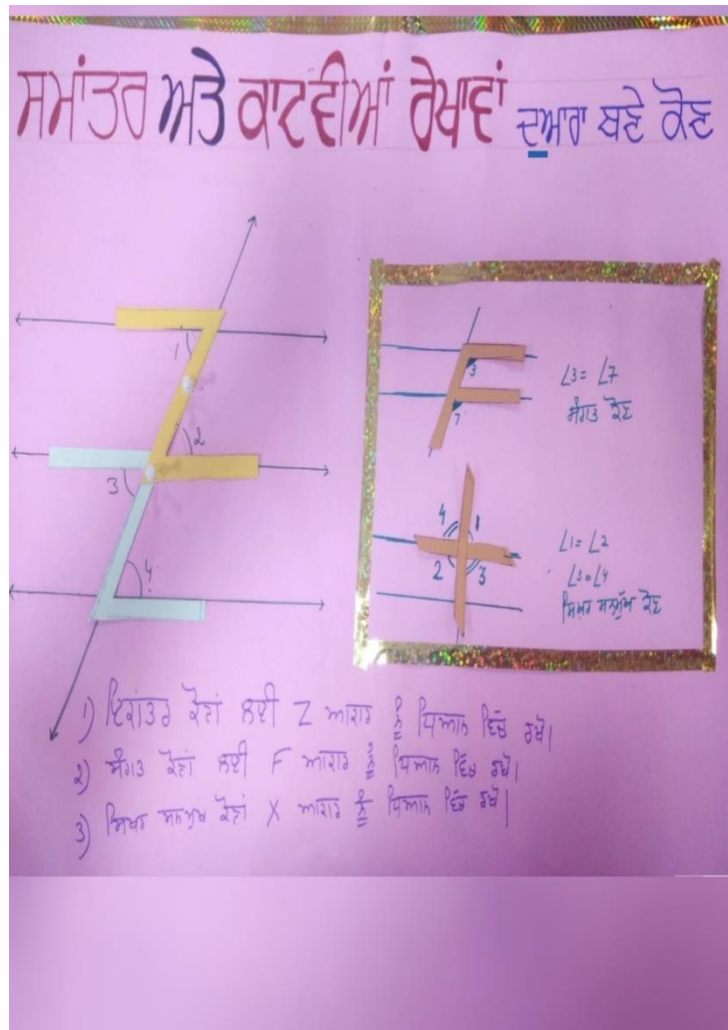 ਸਮਾਂਤਰ ਅਤੇ ਕਾਟਵੀਆਂ ਰੇਖਾਵਾਂ ਦੁਆਰਾ ਬਣੇ ਕੋਣ
1
2
3
4
3
7
∠3 = ∠7
ਸੰਗਤ ਕੋਣ
4 1
2 3
∠1 = ∠2
∠3 = ∠4
ਸਿਖਰ ਸਨਮੁੱਖ ਕੋਣ
1) ਇਕਾਂਤਰ ਕੋਣਾਂ ਲਈ Z ਆਕਾਰ ਨੂੰ ਧਿਆਨ ਵਿੱਚ ਰਖੋ।
2) ਸੰਗਤ ਕੋਣਾਂ ਲਈ F ਆਕਾਰ ਨੂੰ ਧਿਆਨ ਵਿੱਚ ਰਖੋ।
3) ਸਿਖਰ ਸਨਮੁਖ ਕੋਣਾਂ X ਆਕਾਰ ਨੂੰ ਧਿਆਨ ਵਿੱਚ ਰਖੋ।